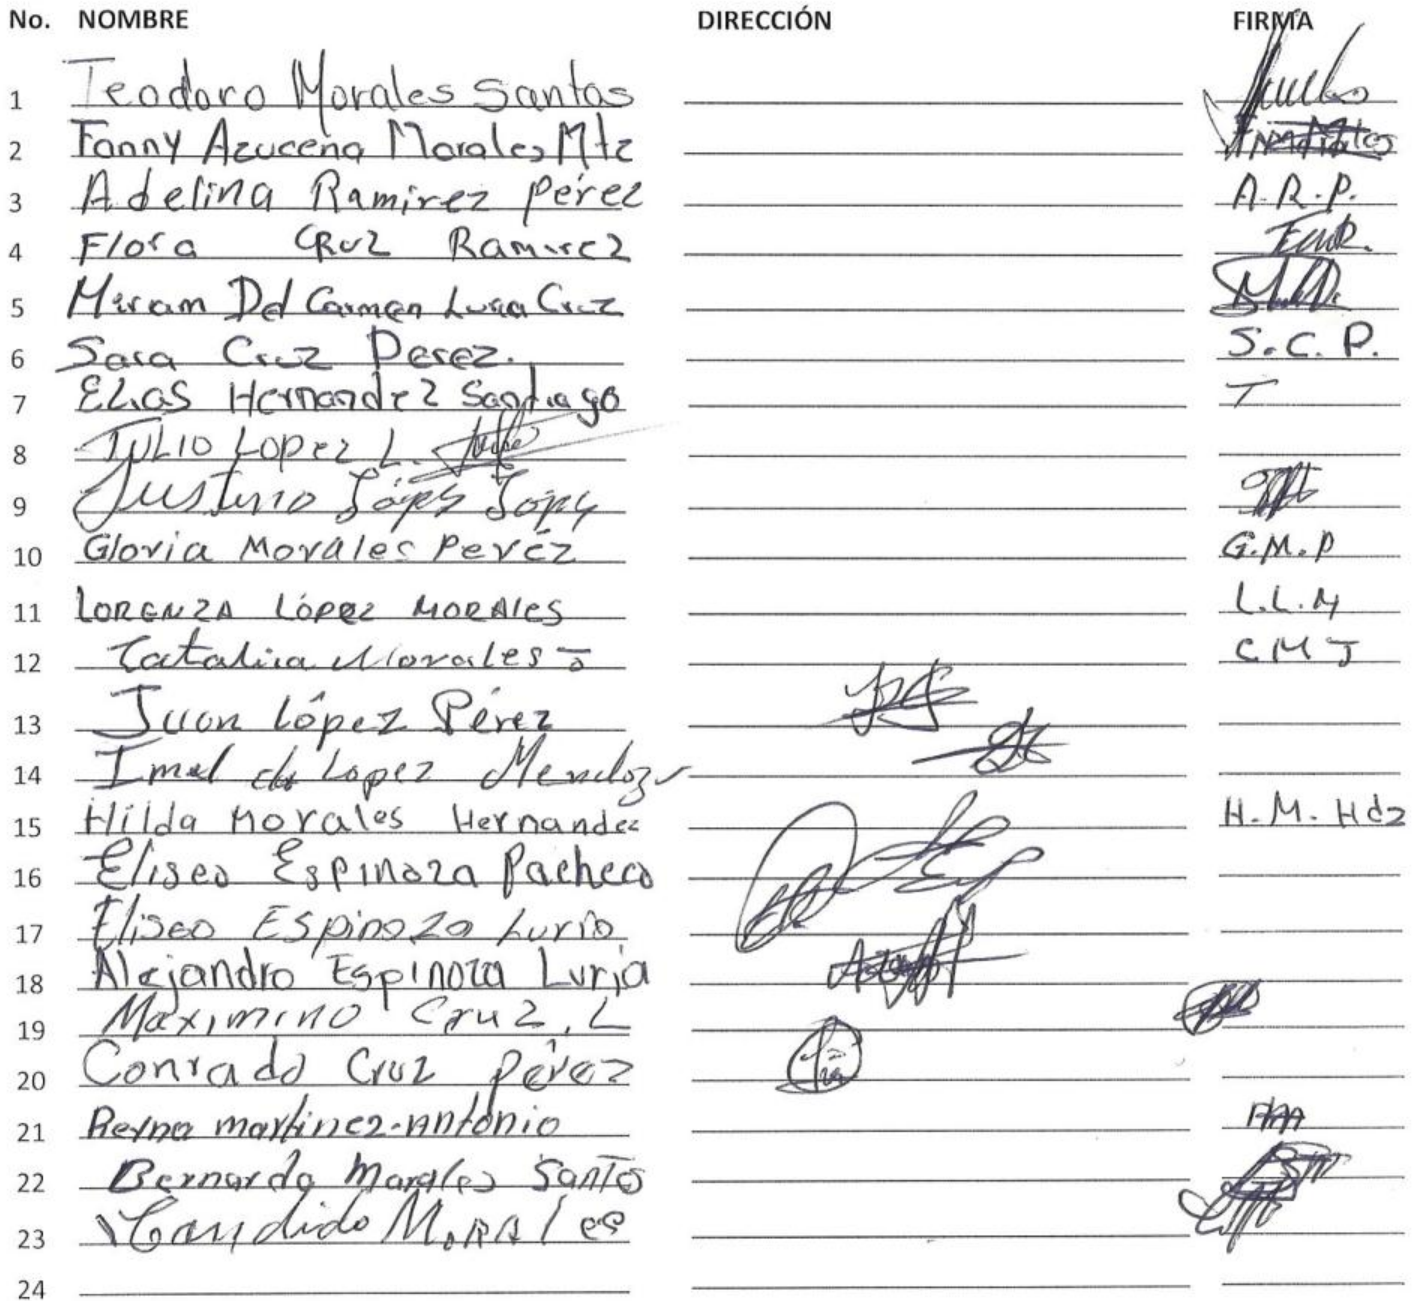 No. NOMBRE DIRECCIÓN FIRMA
1 Teodoro Morales Santos
2 Fanny Azucena Morales Mtz
3 Adelina Ramirez Pérez A.R.P.
4 Flora CRUZ Ramirez
5 Miriam Del Carmen Luria Cruz
6 Sara Cruz Perez. S.C.P.
7 ELias Hernandez Santiago T
8 JULIO Lopez L.
9 Justino López López
10 Gloria Morales Peréz G.M.P
11 LORENZA LópEz MORAlES L.L.M
12 Catalina Morales J C M J
13 Juan López Pérez
14 Imelda Lopez Mendoza
15 Hilda Morales Hernandez H.M. Hdz
16 Eliseo Espinoza Pacheco
17 Eliseo Espinoza Luria
18 Alejandro Espinoza Luria
19 Maximino Cruz. L
20 Conrado Cruz Pérez
21 Reyna martinez Antonio
22 Bernardo Morales Santos
23 Candido MORAles
24